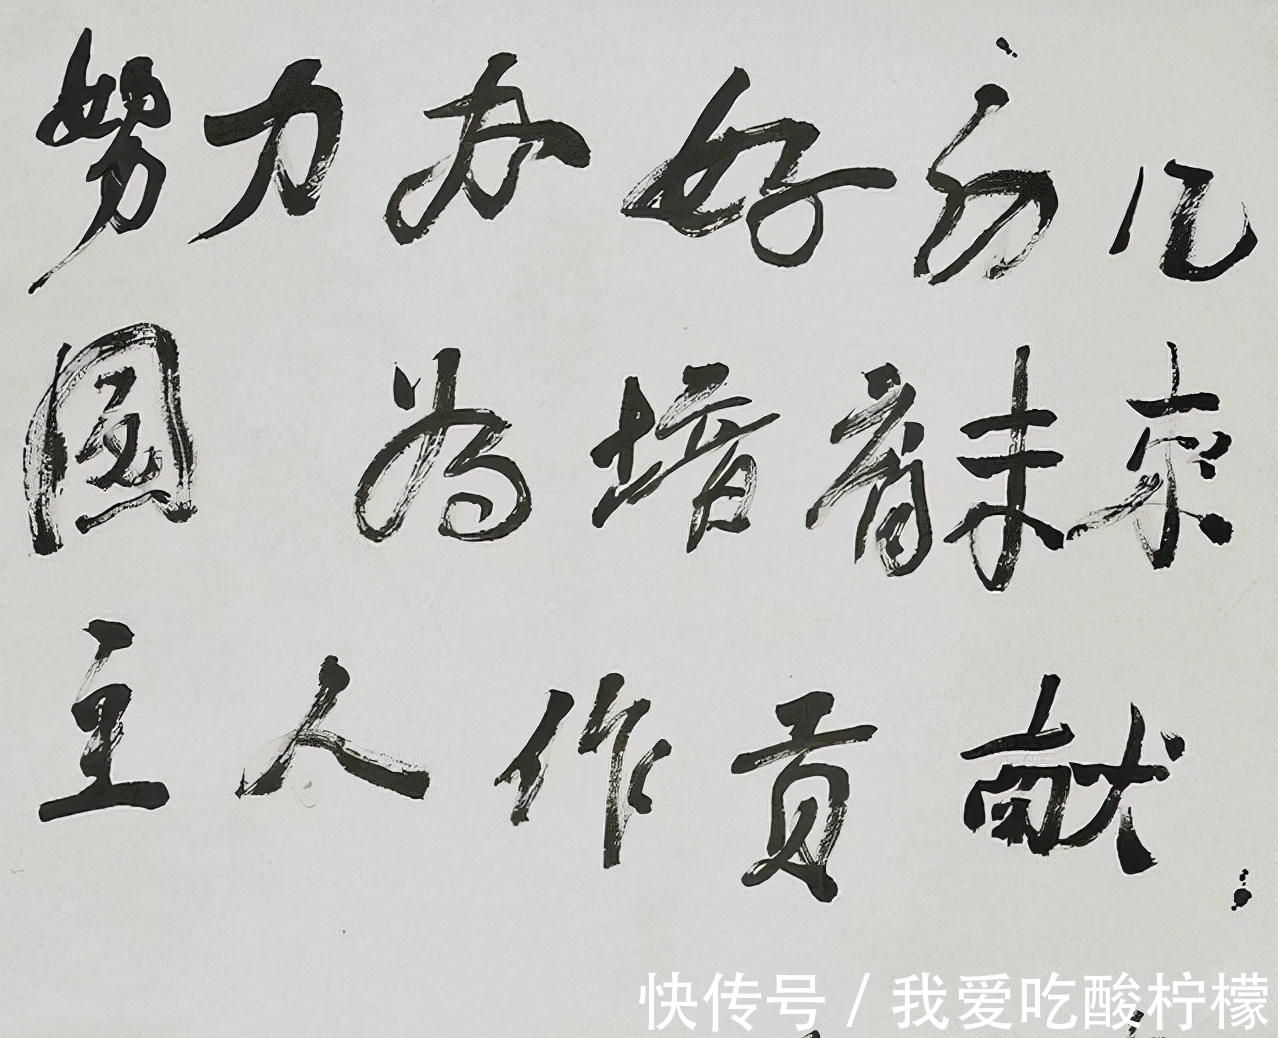 努力办好方几
园 为培育未来
主人作贡献
快传号/我爱吃酸柠檬